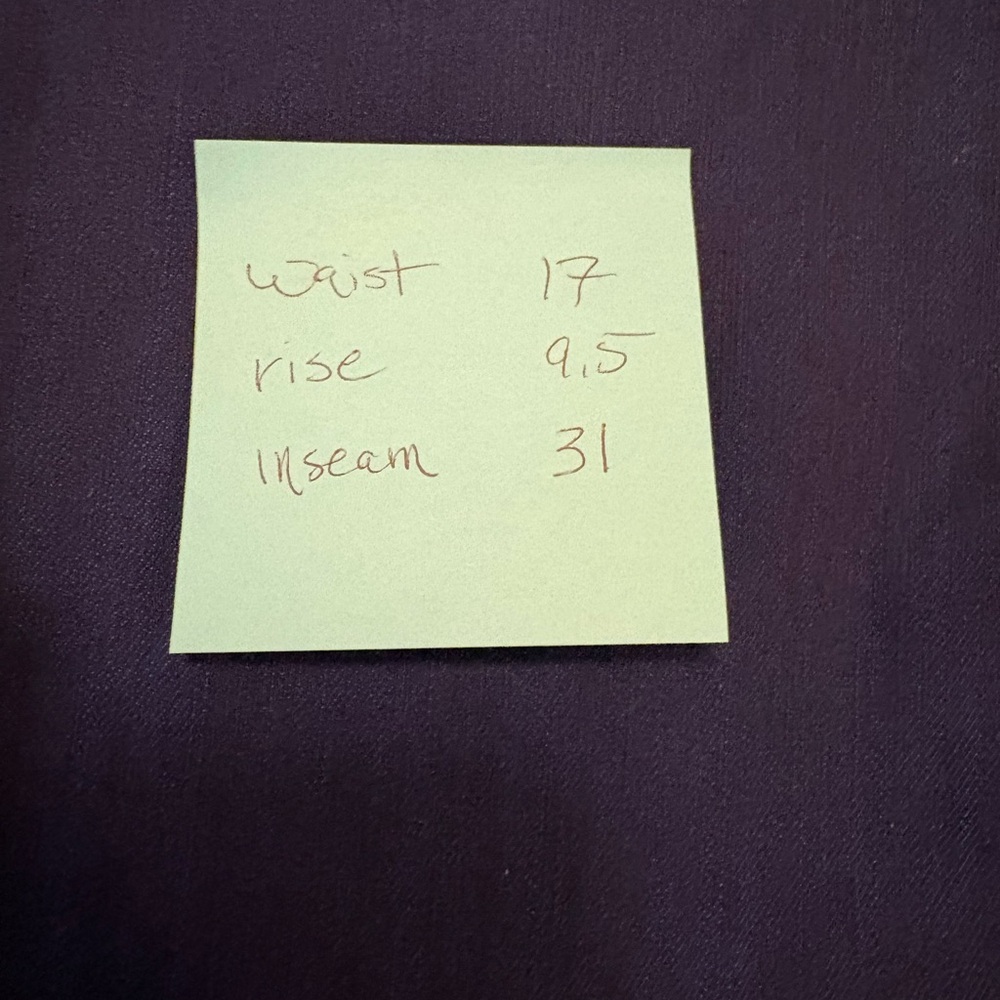 waist 17
rise 9.5
inseam 31